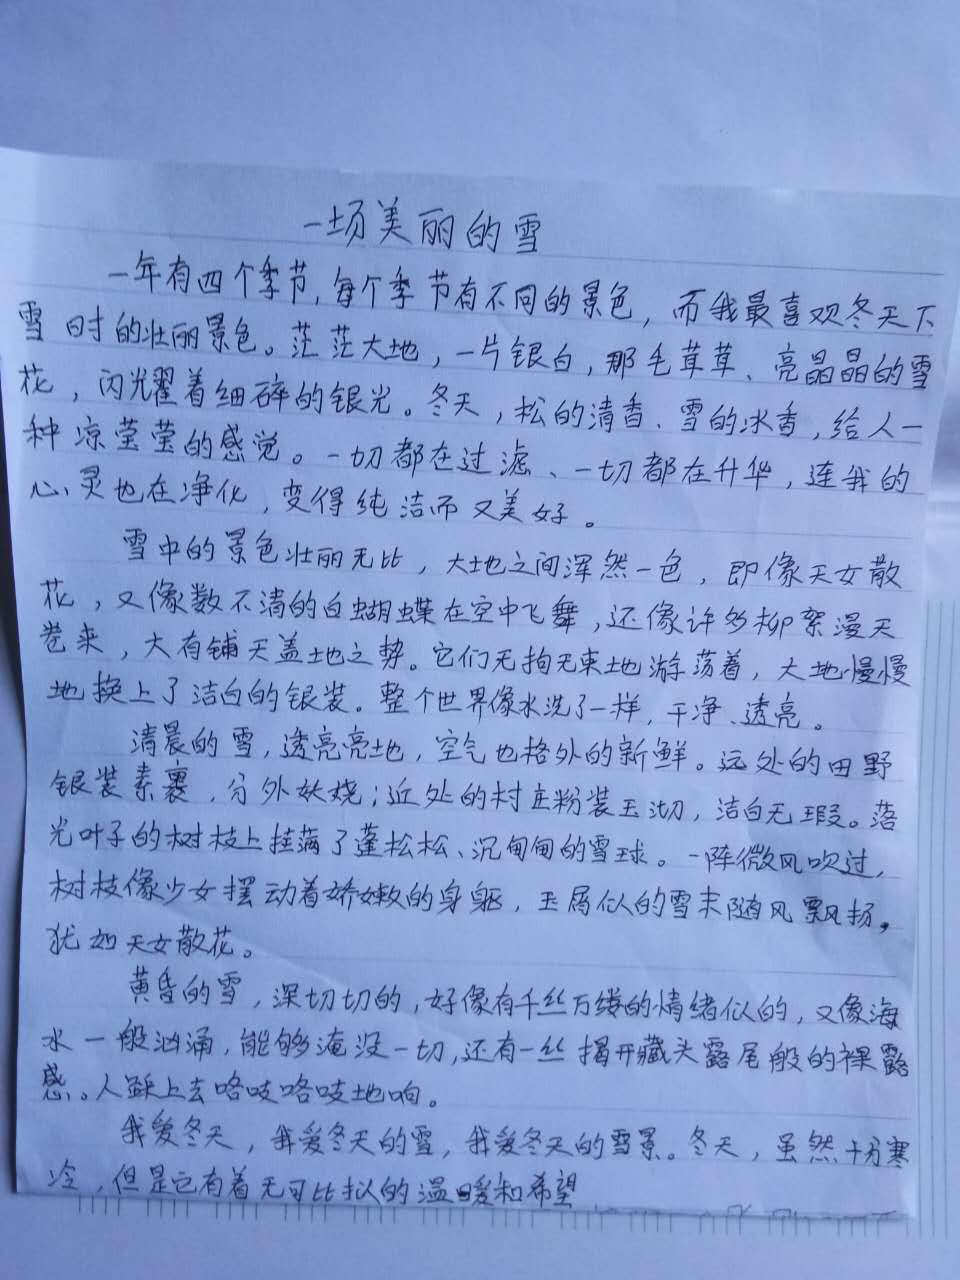 一场美丽的雪
一年有四个季节,每个季节有不同的景色,而我最喜欢冬天下
雪时的壮丽景色。茫茫大地,一片银白,那毛茸茸、亮晶晶的雪
花,闪光着细碎的银光。冬天,松的清香、雪的冰香,给人一
种凉莹莹的感觉。一切都在过滤、一切都在升华,连我的
心灵也在净化,变得纯洁而又美好。
雪中的景色壮丽无比,大地之间浑然一色,即像天女散
花,又像数不清的白蝴蝶在空中飞舞,还像许多柳絮漫天
卷来,大有铺天盖地之势。它们无拘无束地游荡着,大地慢慢
地换上了洁白的银装。整个世界像水洗了一样,干净、透亮。
清晨的雪,透亮亮地,空气也格外的新鲜。远处的田野
银装素裹,分外妖娆;近处的村庄粉装玉沏,洁白无瑕。落
光叶子的树枝上挂满了蓬松松、沉甸甸的雪球。一阵微风吹过,
树枝像少女摆动着娇嫩的身躯,玉屑似的雪末随风飘扬,
犹如天女散花。
黄昏的雪,深切切的,好像有千丝万缕的情绪似的,又像海
水一般汹涌,能够淹没一切,还有一丝揭开藏头露尾般的裸露
感。人踩上去咯吱咯吱地响。
我爱冬天,我爱冬天的雪,我爱冬天的雪景。冬天,虽然十分寒
冷,但是它有着无可比拟的温暖和希望